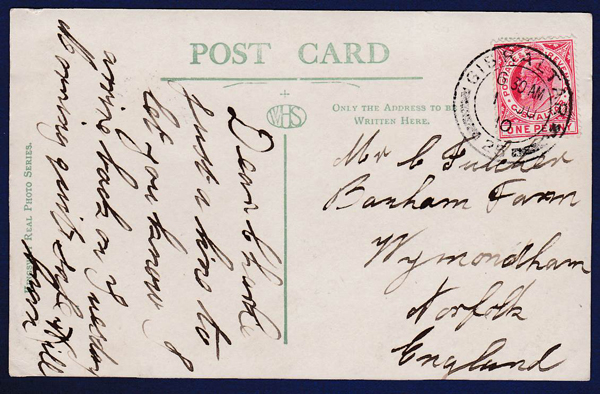 POST CARD
ONLY THE ADDRESS TO BE
WRITTEN HERE.
WHS
REAL PHOTO SERIES.
GIBRALTAR
6 30 AM
10
ONE PENNY
Mr C
Banham Farm
Wymondham
Norfolk
England
Dear Charlie
Just a line to
let you know I
arrive back on Tuesday
morning quite
Will